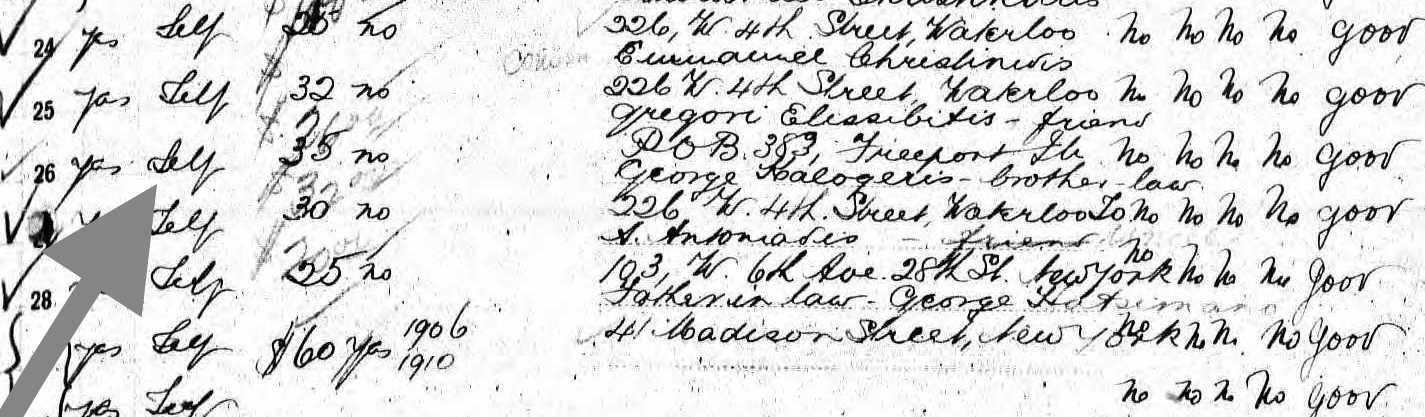 24 yes Self no 226, W. 4th Street, Waterloo no no no no good
Emmanuel Christinidis
25 yes Self 32 no 226 W. 4th Street, Waterloo no no no no good
Gregori Elissibitis - friend
26 yes Self 35 no P O B. 383, Freeport Ill. no no no no good
George Kalogeris - brother-law
Self 30 no 226, W. 4th. Street, Waterloo Io. no no no no good
A. Antoniadis - friend
28 Self 25 no 103, W. 6th Ave. 28th St. New York no no no no good
Father in law - George
yes Self $60 yes 1906 1910 41 Madison Street, New York no no no no good
yes Self no no no no good